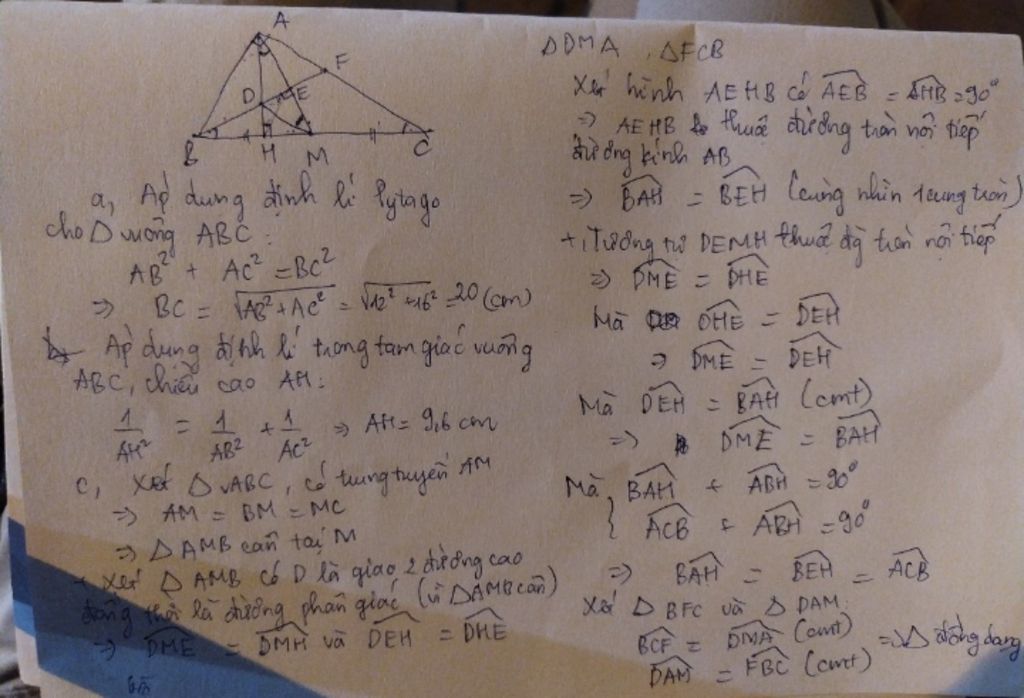 A
F
D
E
B
H
M
C
a, Áp dụng định lí Pytago
cho Δ vuông ABC :
AB² + AC² = BC²
=> BC = √AB² + AC² = √12² + 16² = 20 (cm)
Áp dụng định lí trong tam giác vuông
ABC, chiều cao AH :
1/AH² = 1/AB² + 1/AC² => AH = 9,6 cm
c, Xét Δ vABC, có trung tuyến AM
=> AM = BM = MC
=> Δ AMB cân tại M
+ Xét Δ AMB có D là giao 2 đường cao
đồng thời là đường phân giác (vì ΔAMB cân)
=> DME = DMH và DEH = DHE
ΔDMA , ΔFCB
Xét hình AEHB có AEB = AHB = 90°
=> AEHB thuộc đường tròn nội tiếp
đường kính AB
=> BAH = BEH (cùng nhìn 1 cung tròn)
+, Tương tự DEMH thuộc đg tròn nội tiếp
=> DME = DHE
Mà DHE = DEH
=> DME = DEH
Mà DEH = BAH (cmt)
=> DME = BAH
Mà { BAH + ABH = 90°
ACB + ABH = 90°
=> BAH = BEH = ACB
Xét Δ BFC và Δ DAM :
BCF = DMA (cmt)
DAM = FBC (cmt) => Δ đồng dạng